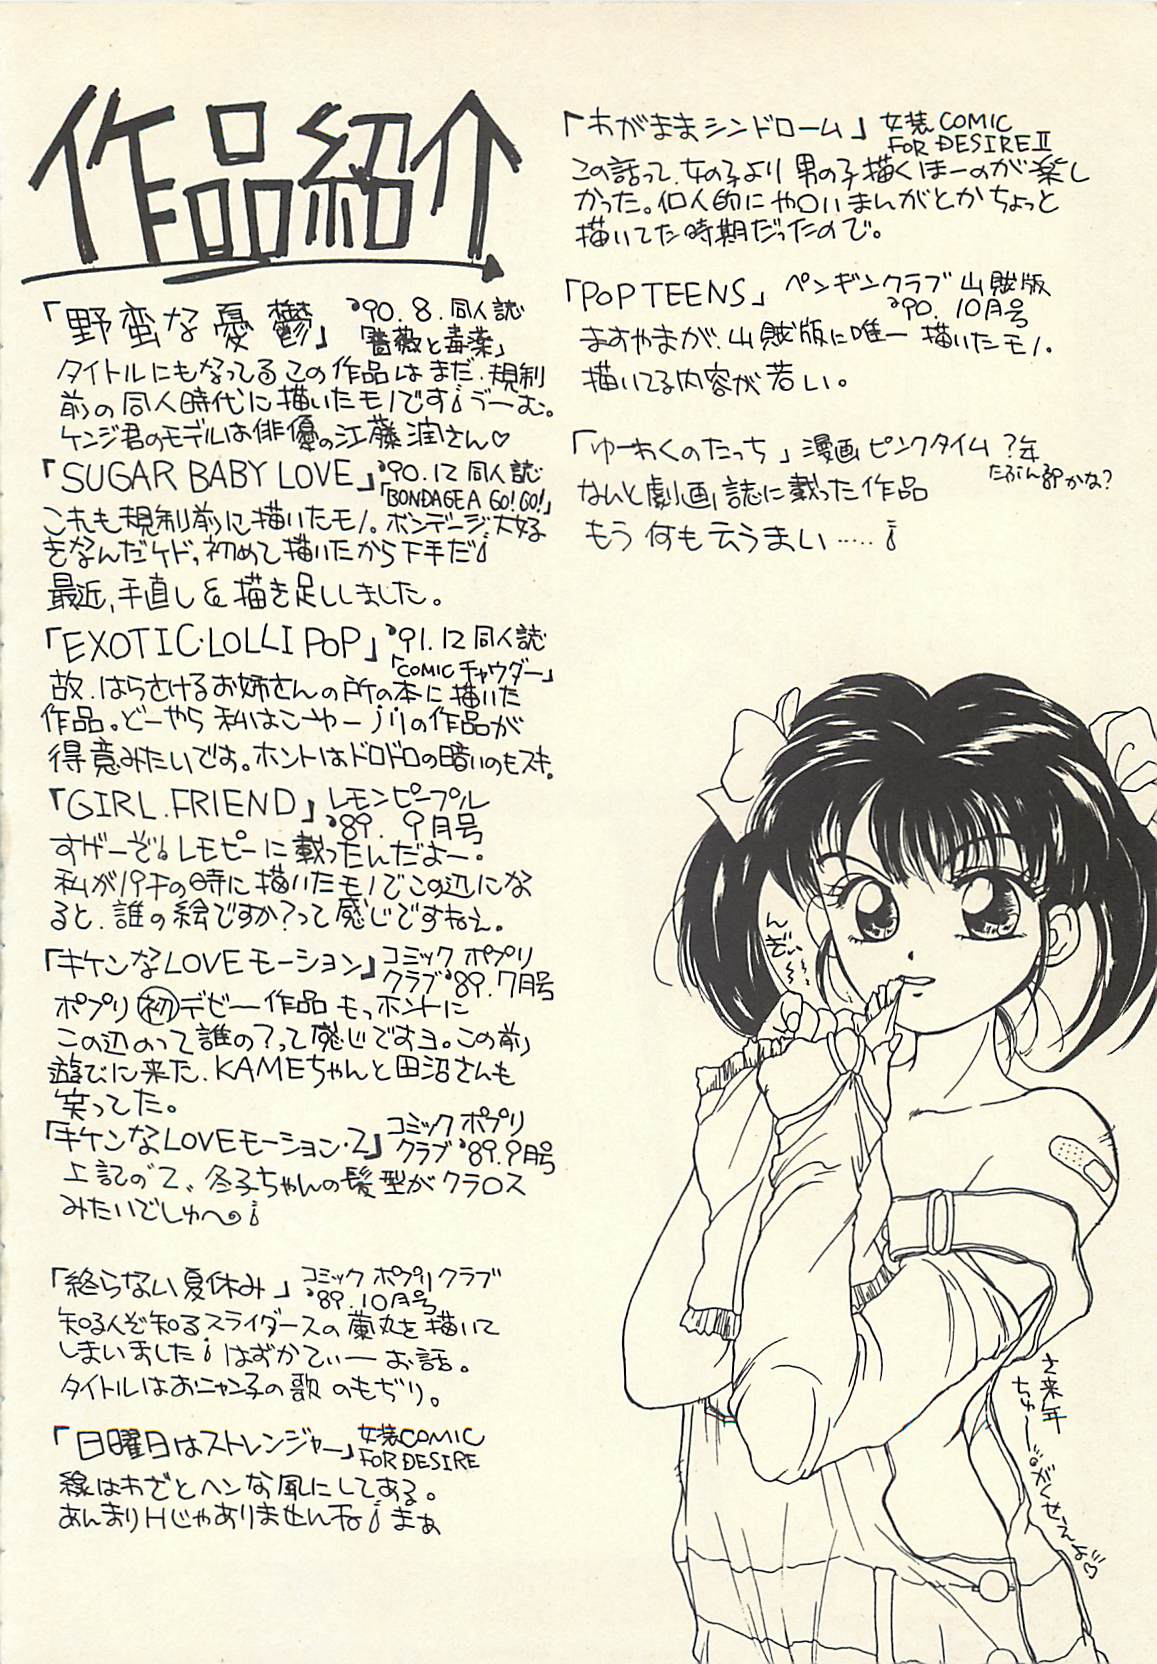 作品紹介
「野蛮な憂鬱」 '90.8.同人誌
「薔薇と毒薬」
タイトルにもなってるこの作品はまだ、規制
前の同人時代に描いたモノです!うーむ。
ケンジ君のモデルは俳優の江藤潤さん♡
「SUGAR BABY LOVE」 '90.12 同人誌
「BONDAGE A GO!GO!」
これも規制前に描いたモノ。ボンデージ大好
きなんだケド、初めて描いたから下手だ!
最近、手直し&描き足ししました。
「EXOTIC・LOLLIPOP」 '91.12 同人誌
「COMICチャウダー」
故.はらさけるお姉さんの所の本に描いた
作品。どーやら私はこーゆーノリの作品が
得意みたいです。ホントはドロドロの暗いのもスキ。
「GIRL.FRIEND」 レモンピープル
'89.9月号
すげーぞ!レモピーに載ったんだよー。
私がパチの時に描いたモノでこの辺にな
ると、誰の絵ですか?って感じですねえ。
「キケンなLOVEモーション」 コミック ポプリ
クラブ '89.7月号
ポプリ初デビー作品 もっホントに
この辺のって誰の?って感じですヨ。この前
遊びに来た、KAMEちゃんと田沼さんも
笑ってた。
「キケンなLOVEモーション・2」 コミック ポプリ
クラブ '89.9月号
上記の2、冬子ちゃんの髪型がクラロス
みたいでしゅへ!
「終らない夏休み」 コミック ポプリクラブ
'89.10月号
知る人ぞ知るスライダースの蘭丸を描いて
しまいました!はずかてぃーお話。
タイトルはおニャン子の歌のもぢり。
「日曜日はストレンジャー」 女装COMIC
FOR DESIRE
線はわざとヘンな風にしてある。
あんまりHじゃありませんね!まぁ
「わがままシンドローム」 女装COMIC
FOR DESIRE II
この話って、女の子より男の子描くほーのが楽し
かった。個人的にや〇いまんがとかちょっと
描いてた時期だったので。
「POP TEENS」 ペンギンクラブ山賊版
'90.10月号
ますやまが、山賊版に唯一描いたモノ。
描いてる内容が若い。
「ゆーわくのたっち」 漫画ピンクタイム ?年
たぶん89かな?
なんと劇画誌に載った作品
もう何も云うまい……!
んぎぃ〜〜
さ来年
ちゅー
がくせえよ♡